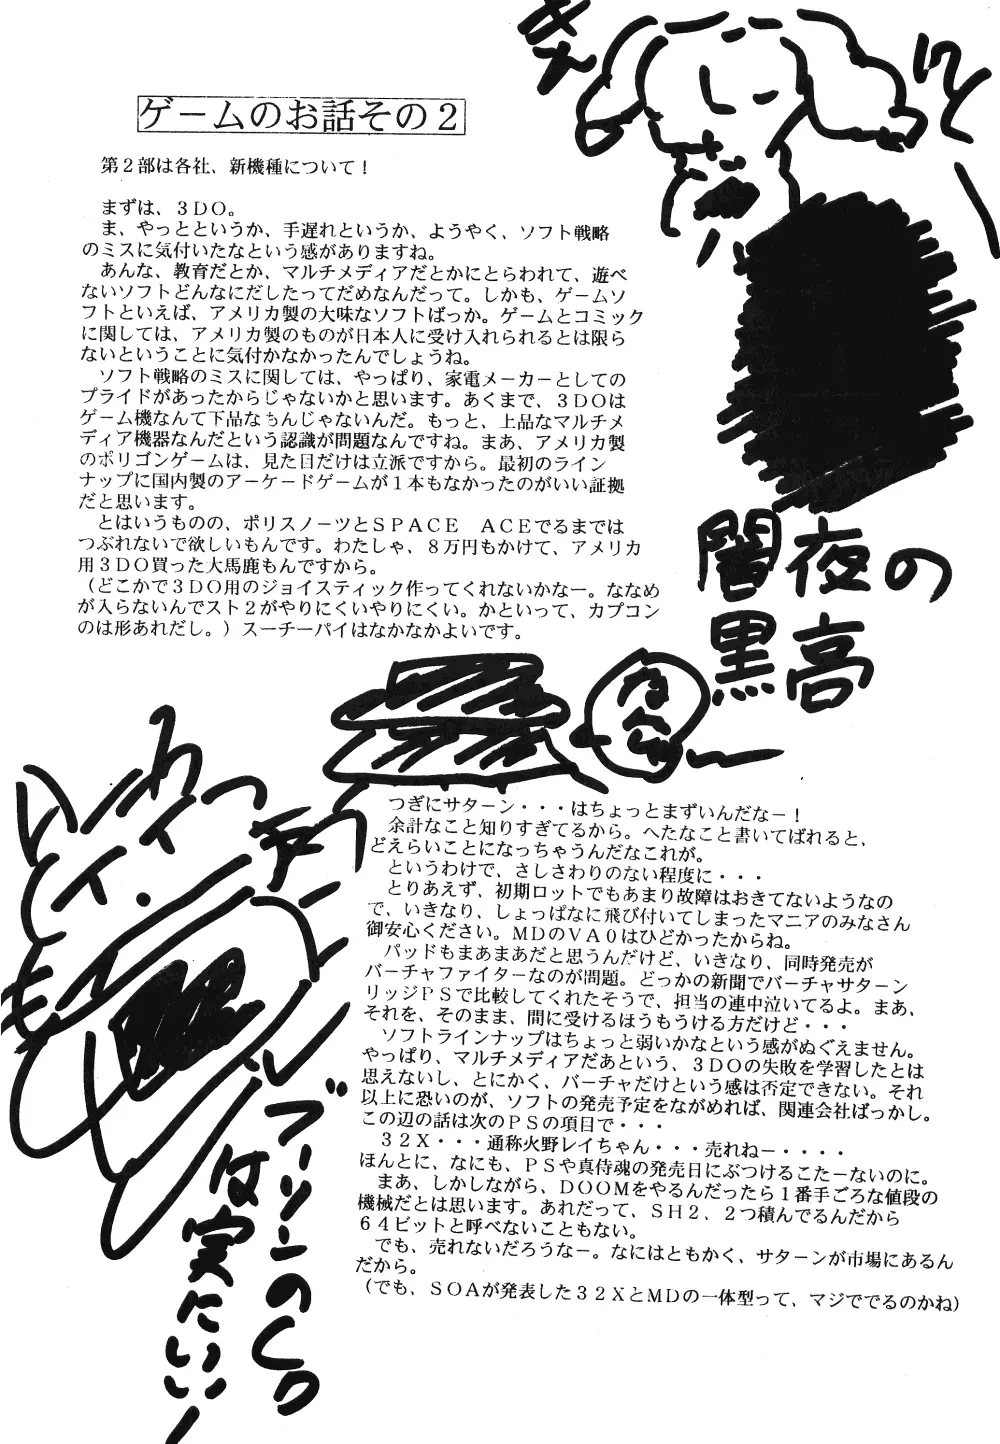 ゲームのお話その２
第２部は各社、新機種について！
まずは、３ＤＯ。
ま、やっとというか、手遅れというか、ようやく、ソフト戦略
のミスに気付いたなという感がありますね。
あんな、教育だとか、マルチメディアだとかにとらわれて、遊べ
ないソフトどんなにだしたってだめなんだって。しかも、ゲームソ
フトといえば、アメリカ製の大味なソフトばっか。ゲームとコミック
に関しては、アメリカ製のものが日本人に受け入れられるとは限ら
ないということに気付かなかったんでしょうね。
ソフト戦略のミスに関しては、やっぱり、家電メーカーとしての
プライドがあったからじゃないかと思います。あくまで、３ＤＯは
ゲーム機なんて下品なもんじゃないんだ。もっと、上品なマルチメ
ディア機器なんだという認識が問題なんですね。まあ、アメリカ製
のポリゴンゲームは、見た目だけは立派ですから。最初のライン
ナップに国内製のアーケードゲームが１本もなかったのがいい証拠
だと思います。
とはいうものの、ポリスノーツとＳＰＡＣＥ　ＡＣＥでるまでは
つぶれないで欲しいもんです。わたしゃ、８万円もかけて、アメリカ
用３ＤＯ買った大馬鹿もんですから。
（どこかで３ＤＯ用のジョイスティック作ってくれないかなー。ななめ
が入らないんでスト２がやりにくいやりにくい。かといって、カプコン
のは形あれだし。）スーチーパイはなかなかよいです。
闇夜の
黒高
つぎにサターン・・・はちょっとまずいんだなー！
余計なこと知りすぎてるから。へたなこと書いてばれると、
どえらいことになっちゃうんだなこれが。
というわけで、さしさわりのない程度に・・・
とりあえず、初期ロットでもあまり故障はおきてないようなの
で、いきなり、しょっぱなに飛び付いてしまったマニアのみなさん
御安心ください。ＭＤのＶＡ０はひどかったからね。
パッドもまあまあだと思うんだけど、いきなり、同時発売が
バーチャファイターなのが問題。どっかの新聞でバーチャサターン
リッジＰＳで比較してくれたそうで、担当の連中泣いてるよ。まあ、
それを、そのまま、間に受けるほうもうける方だけど・・・
ソフトラインナップはちょっと弱いかなという感がぬぐえません。
やっぱり、マルチメディアだあという、３ＤＯの失敗を学習したとは
思えないし、とにかく、バーチャだけという感は否定できない。それ
以上に恐いのが、ソフトの発売予定をながめれば、関連会社ばっかし。
この辺の話は次のＰＳの項目で・・・
３２Ｘ・・・通称火野レイちゃん・・・売れねー・・・・
ほんとに、なにも、ＰＳや真侍魂の発売日にぶつけるこたーないのに。
まあ、しかしながら、ＤＯＯＭをやるんだったら１番手ごろな値段の
機械だとは思います。あれだって、ＳＨ２、２つ積んでるんだから
６４ビットと呼べないこともない。
でも、売れないだろうなー。なにはともかく、サターンが市場にあるん
だから。
（でも、ＳＯＡが発表した３２ＸとＭＤの一体型って、マジででるのかね）
ブーリンのくつ
は実にいい！